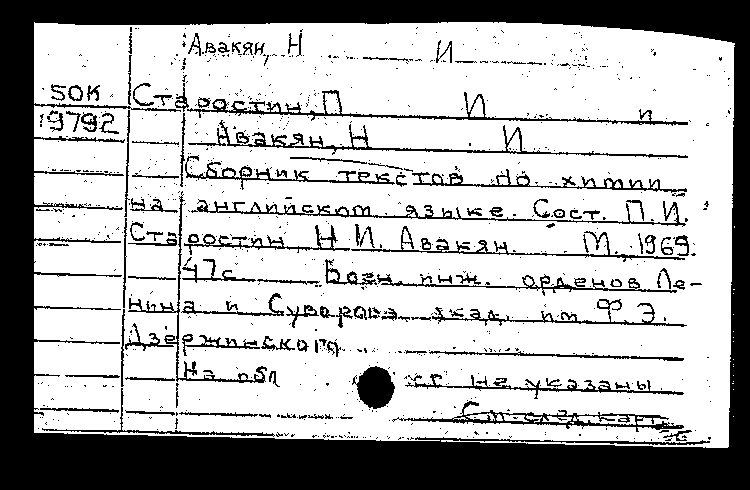 Авакян, Н И
50К Старостин, П И и
19792 Авакян, Н И
Сборник текстов по химии
на английском языке. Сост. П.И.
Старостин, Н.И. Авакян. М., 1969.
47с Воен. инж. орденов Ле-
нина и Суворова акад. им Ф.Э.
Дзержинского
На обл не указаны
См. след. карт.